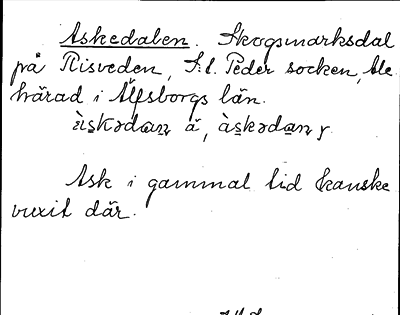 Askedalen. Skogsmarksdal
på Risveden, S:t. Peder socken, Ale
härad i Älfsborgs län.
Ask i gammal tid kanske
vuxit där.